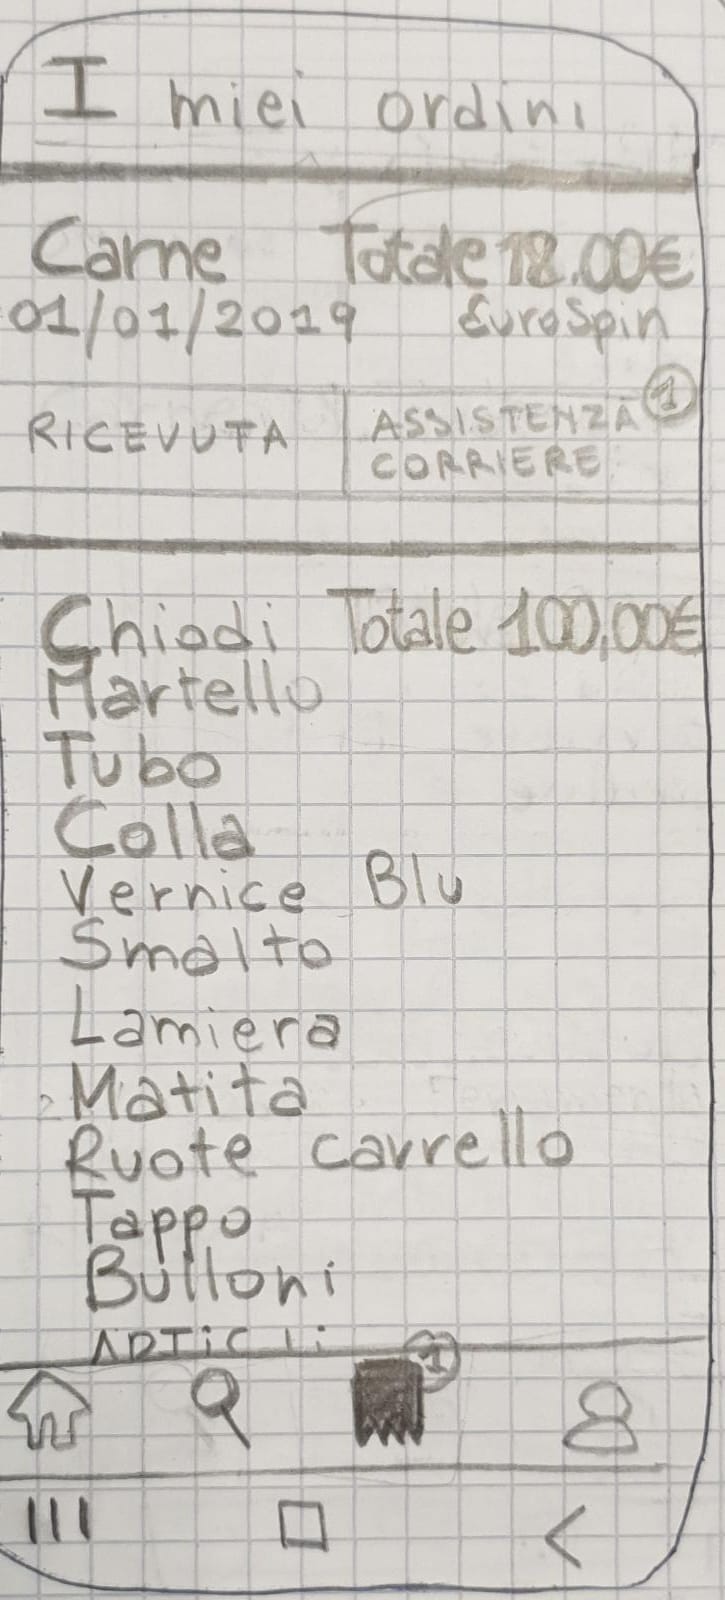 I miei ordini
Carne Totale 18.00€
01/01/2019 EuroSpin
RICEVUTA ASSISTENZA 1
CORRIERE
Chiodi Totale 100,00€
Martello
Tubo
Colla
Vernice Blu
Smalto
Lamiera
Matita
Ruote carrello
Tappo
Bulloni
1